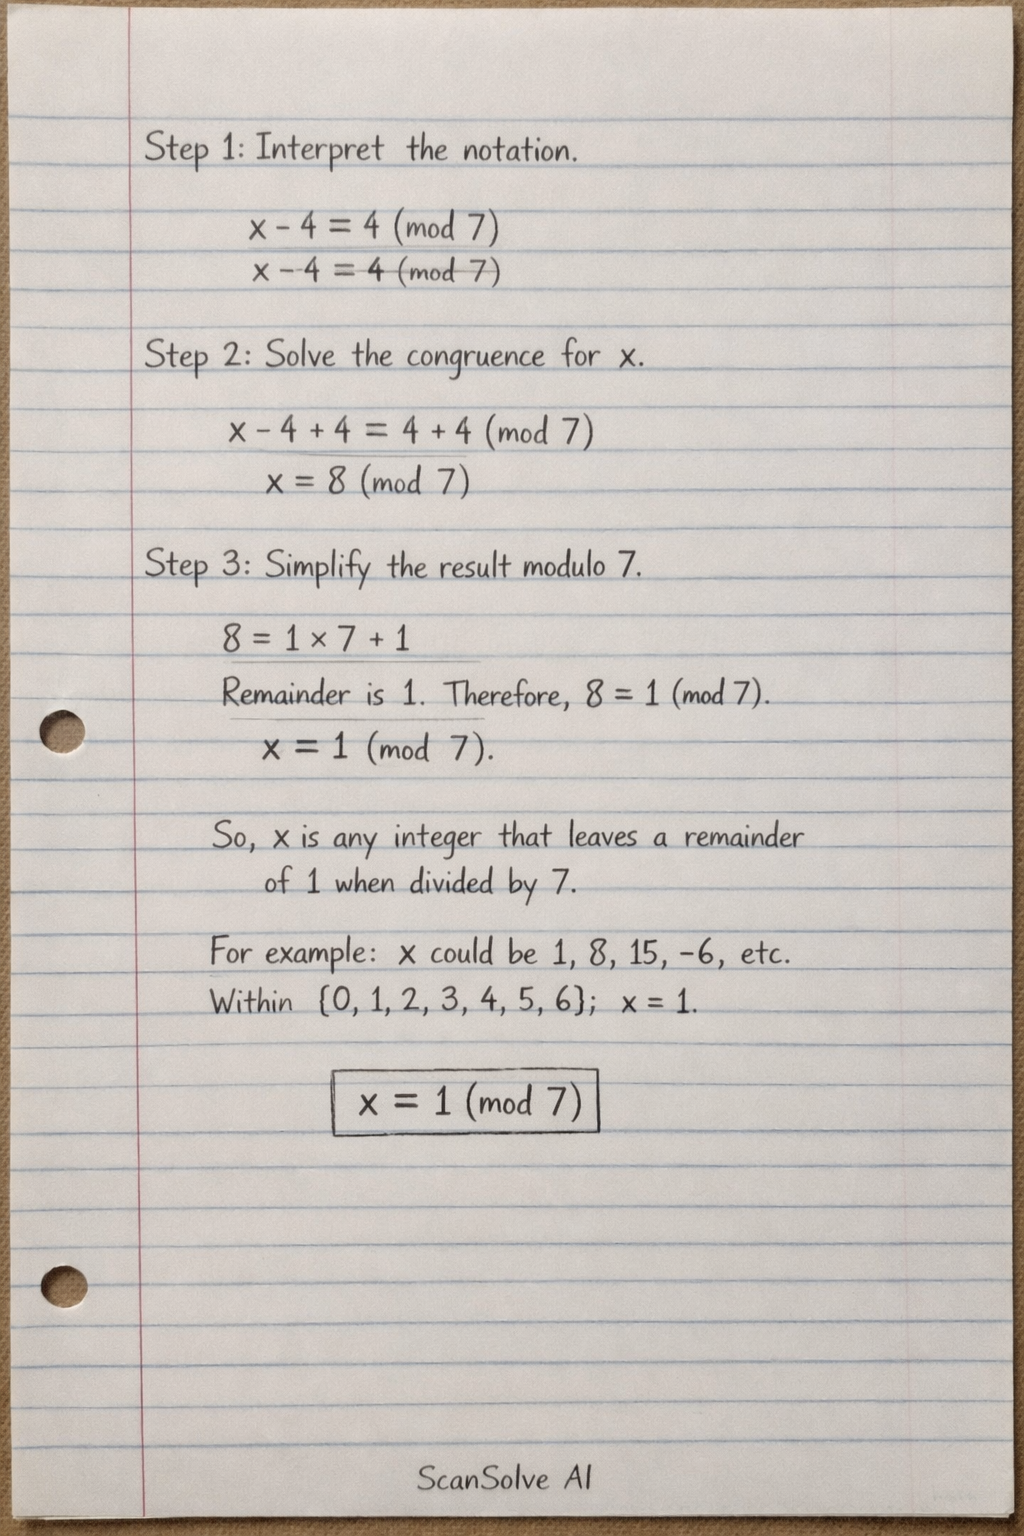 Step 1: Interpret the notation.
x - 4 = 4 (mod 7)
x - 4 = 4 (mod 7)
Step 2: Solve the congruence for x.
x - 4 + 4 = 4 + 4 (mod 7)
x = 8 (mod 7)
Step 3: Simplify the result modulo 7.
8 = 1 × 7 + 1
Remainder is 1. Therefore, 8 = 1 (mod 7).
x = 1 (mod 7).
So, x is any integer that leaves a remainder
of 1 when divided by 7.
For example: x could be 1, 8, 15, -6, etc.
Within {0, 1, 2, 3, 4, 5, 6}; x = 1.
x = 1 (mod 7)
ScanSolve AI